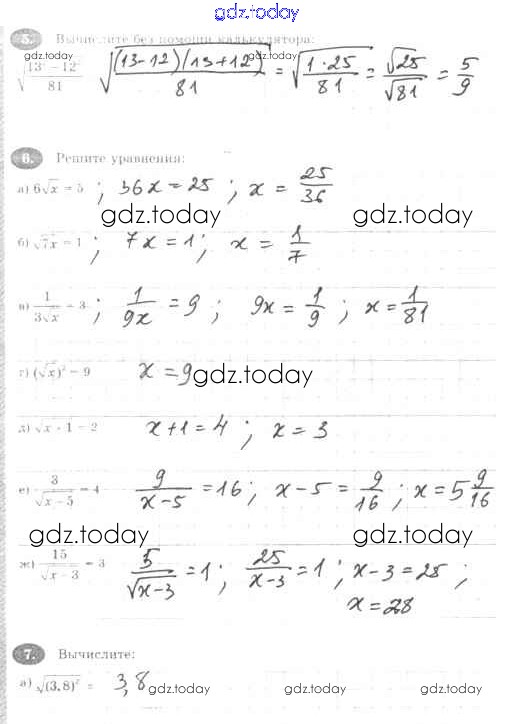 gdz.today
5. Вычислите без помощи калькулятора:
gdz.today
√((13² − 12²)/81) √((13-12)(13+12)/81) = √(1·25/81) = √25/√81 = 5/9
6. Решите уравнения:
а) 6√x = 5 ; 36x = 25 ; x = 25/36
gdz.today gdz.today
б) √7x = 1 ; 7x = 1 ; x = 1/7
в) 1/(3√x) = 3 ; 1/(9x) = 9 ; 9x = 1/9 ; x = 1/81
г) (√x)² = 9 x = 9
gdz.today
д) √x + 1 = 2 x+1 = 4 ; x = 3
е) 3/√(x − 5) = 4 9/(x-5) = 16 ; x-5 = 9/16 ; x = 5 9/16
gdz.today gdz.today
ж) 15/√(x − 3) = 3 5/√(x-3) = 1 ; 25/(x-3) = 1 ; x-3 = 25 ;
x = 28
7. Вычислите:
а) √(3,8)² = 3,8
gdz.today gdz.today